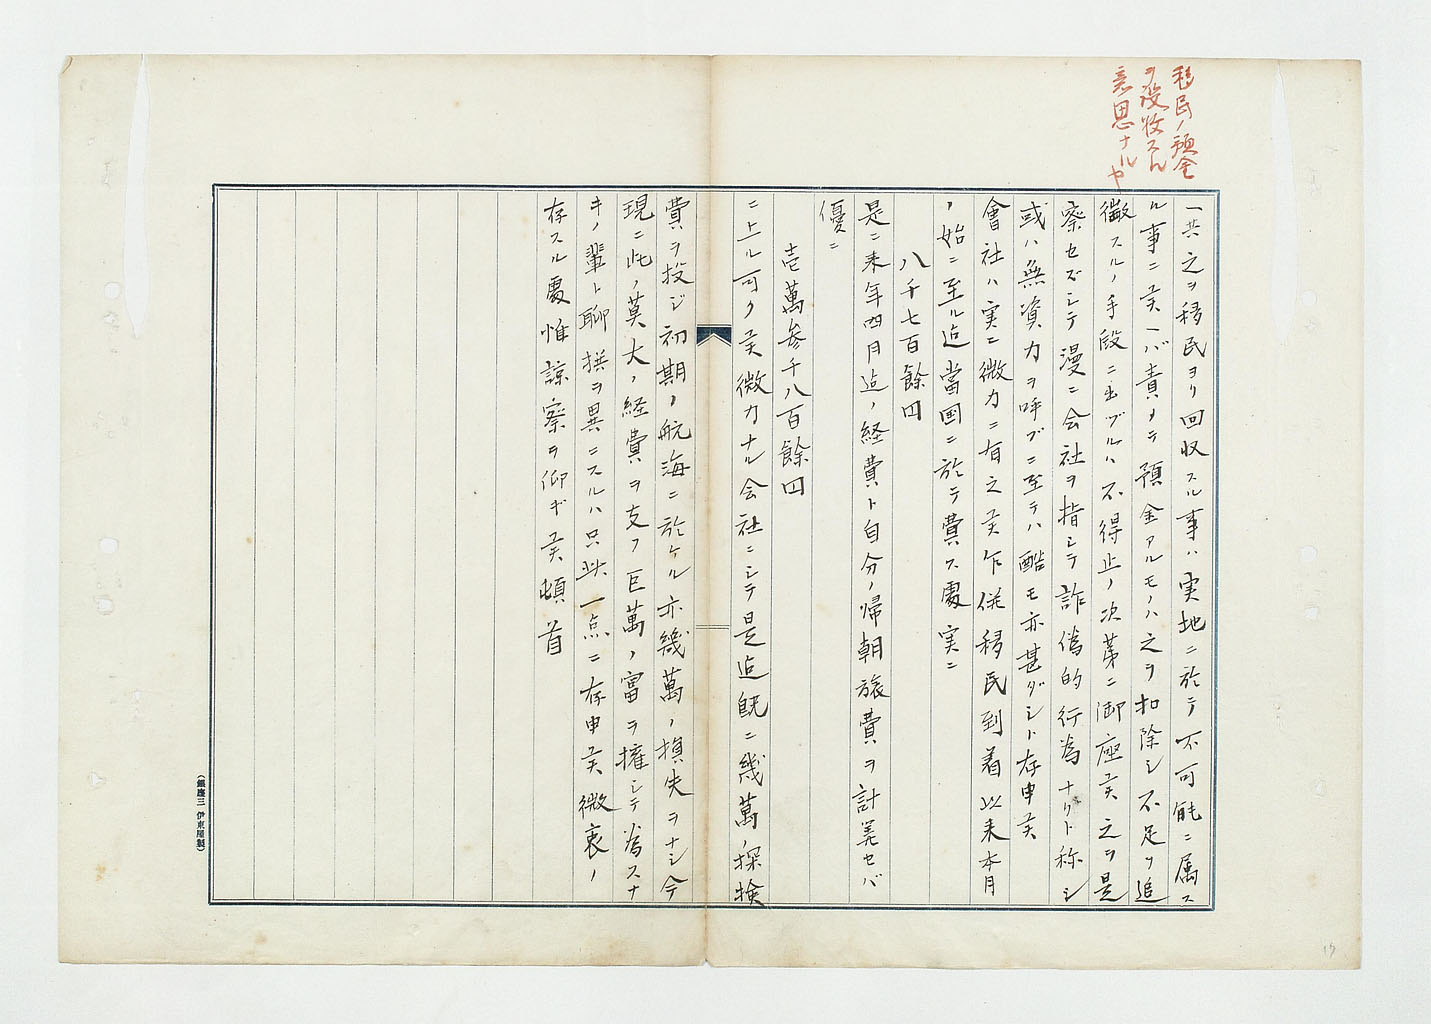 移民ノ預金
ヲ没收スル
意思ナルヤ
一共之ヲ移民ヨリ回収スル事ハ実地ニ於テ不可能ニ属ス
ル事ニ候ヘバ責メテ預金アルモノハ之ヲ扣除シ不足ヲ追
徴スルノ手段ニ出ヅルハ不得止ノ次第ニ御座候之ヲ是
察セズシテ漫ニ会社ヲ指シテ詐偽的行為ナリト称シ
或ハ無資力ヲ呼ブニ至テハ酷モ亦甚ダシト存申候
會社ハ実ニ微力ニ有之候乍併移民到着以来本月
ノ始ニ至ル迄當国ニ於テ費ス處実ニ
八千七百餘円
是ニ来年四月迄ノ経費ト自分ノ帰朝旅費ヲ計算セバ
優ニ
壱萬参千八百餘円
ニ上ル可ク候微力ナル会社ニシテ是迄既ニ幾萬ノ探検
費ヲ投ジ初期ノ航海ニ於ケル亦幾萬ノ損失ヲナシ今
現ニ此ノ莫大ノ経費ヲ支フ巨萬ノ富ヲ擁シテ為スナ
キノ輩ト聊撰ヲ異ニスルハ只此一点ニ存申候微衷ノ
存スル處惟諒察ヲ仰ギ候頓首
(銀座三 伊東屋製)